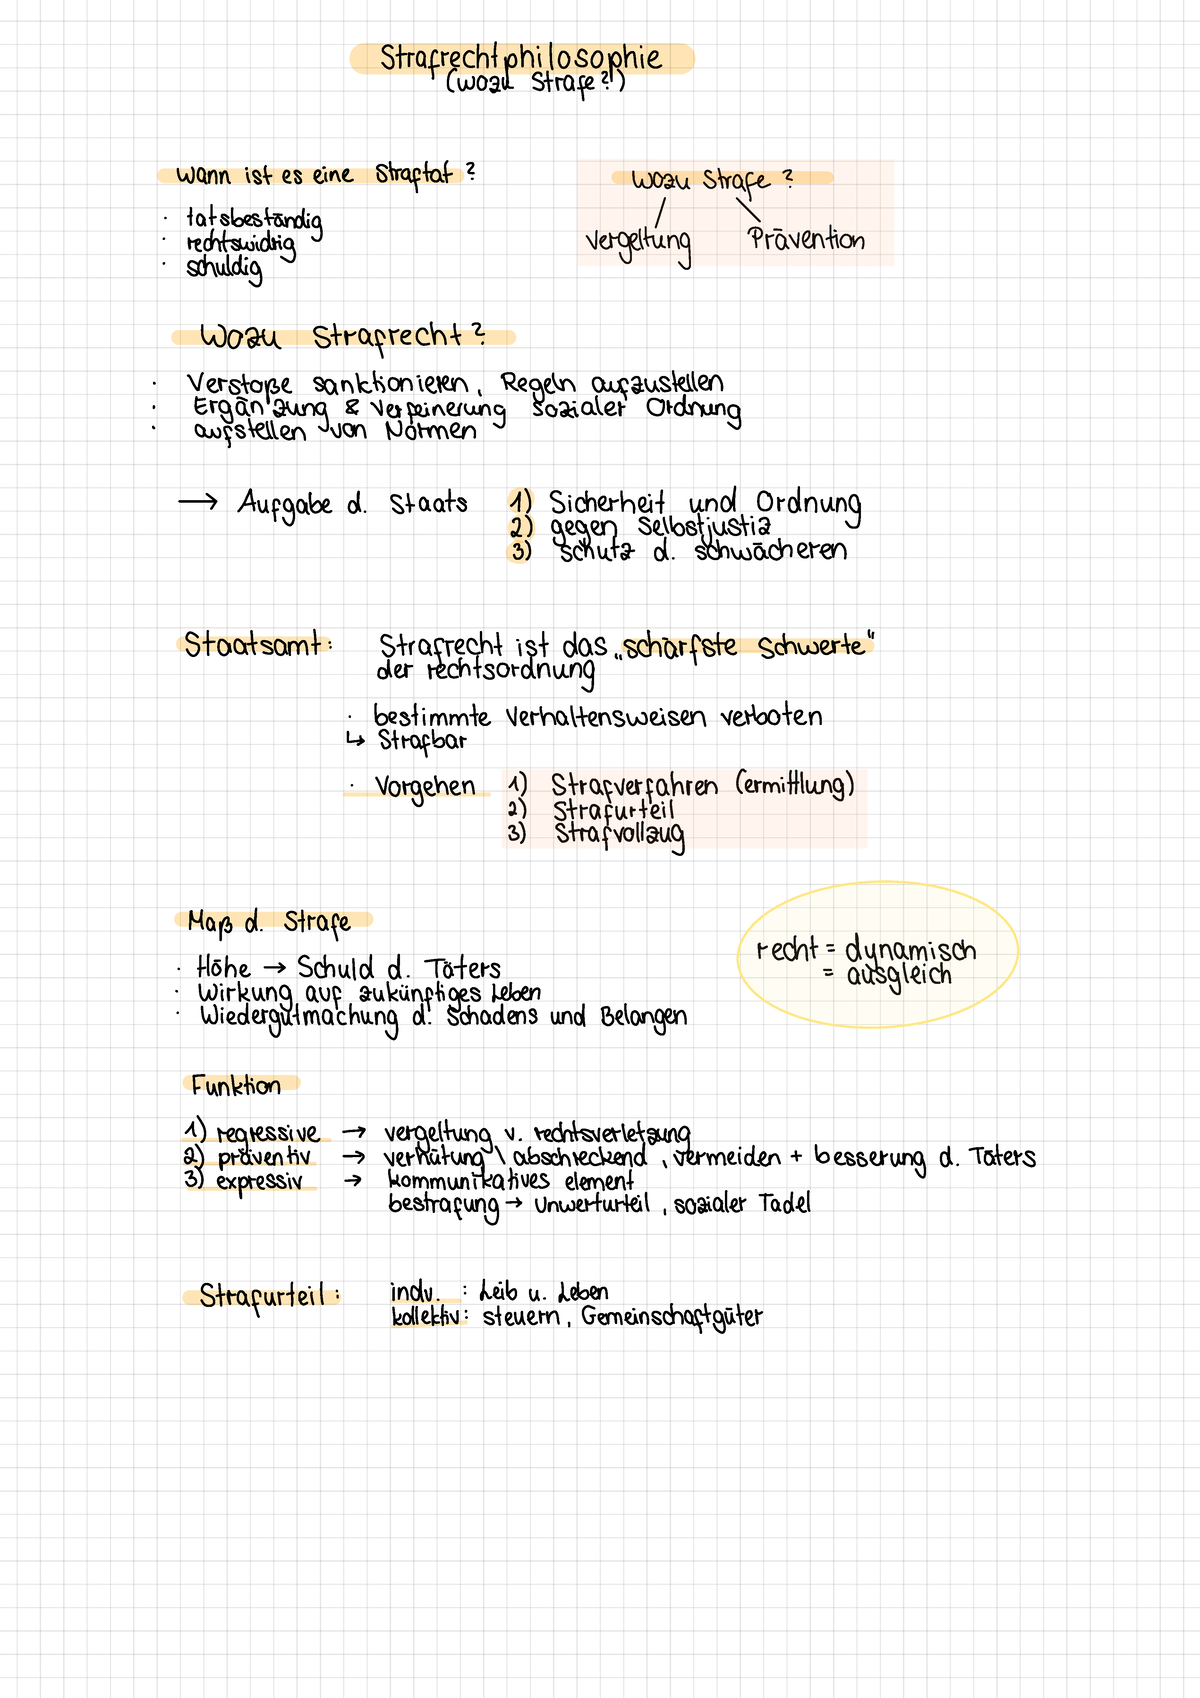 Strafrechtphilosophie
(wozu Strafe?)
Wann ist es eine Straftat?
· tatsbeständig
· rechtswidrig
· schuldig
Wozu Strafe?
Vergeltung Prävention
Wozu Strafrecht?
· Verstoße sanktionieren, Regeln aufzustellen
· Ergänzung & Verfeinerung sozialer Ordnung
· aufstellen von Normen
→ Aufgabe d. Staats 1) Sicherheit und Ordnung
2) gegen Selbstjustiz
3) schutz d. schwächeren
Staatsamt: Strafrecht ist das „schärfste Schwerte“
der rechtsordnung
· bestimmte Verhaltensweisen verboten
↳ Strafbar
· Vorgehen 1) Strafverfahren (ermittlung)
2) Strafurteil
3) Strafvollzug
Maß d. Strafe
· Höhe → Schuld d. Täters
· Wirkung auf zukünftiges Leben
· Wiedergutmachung d. Schadens und Belangen
recht = dynamisch
= ausgleich
Funktion
1) regressive → vergeltung v. rechtsverletzung
2) präventiv → verhütung \ abschreckend, vermeiden + besserung d. Täters
3) expressiv → kommunikatives element
bestrafung → Unwerturteil, sozialer Tadel
Strafurteil: indv. : Leib u. Leben
kollektiv: steuern, Gemeinschaftgüter